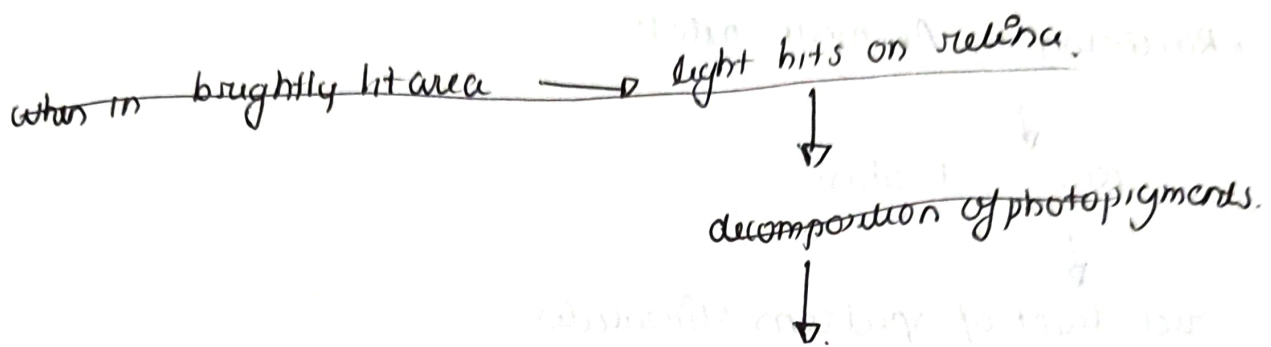 when in brightly lit area → light hits on retina.
↓
decomposition of photopigments.
↓